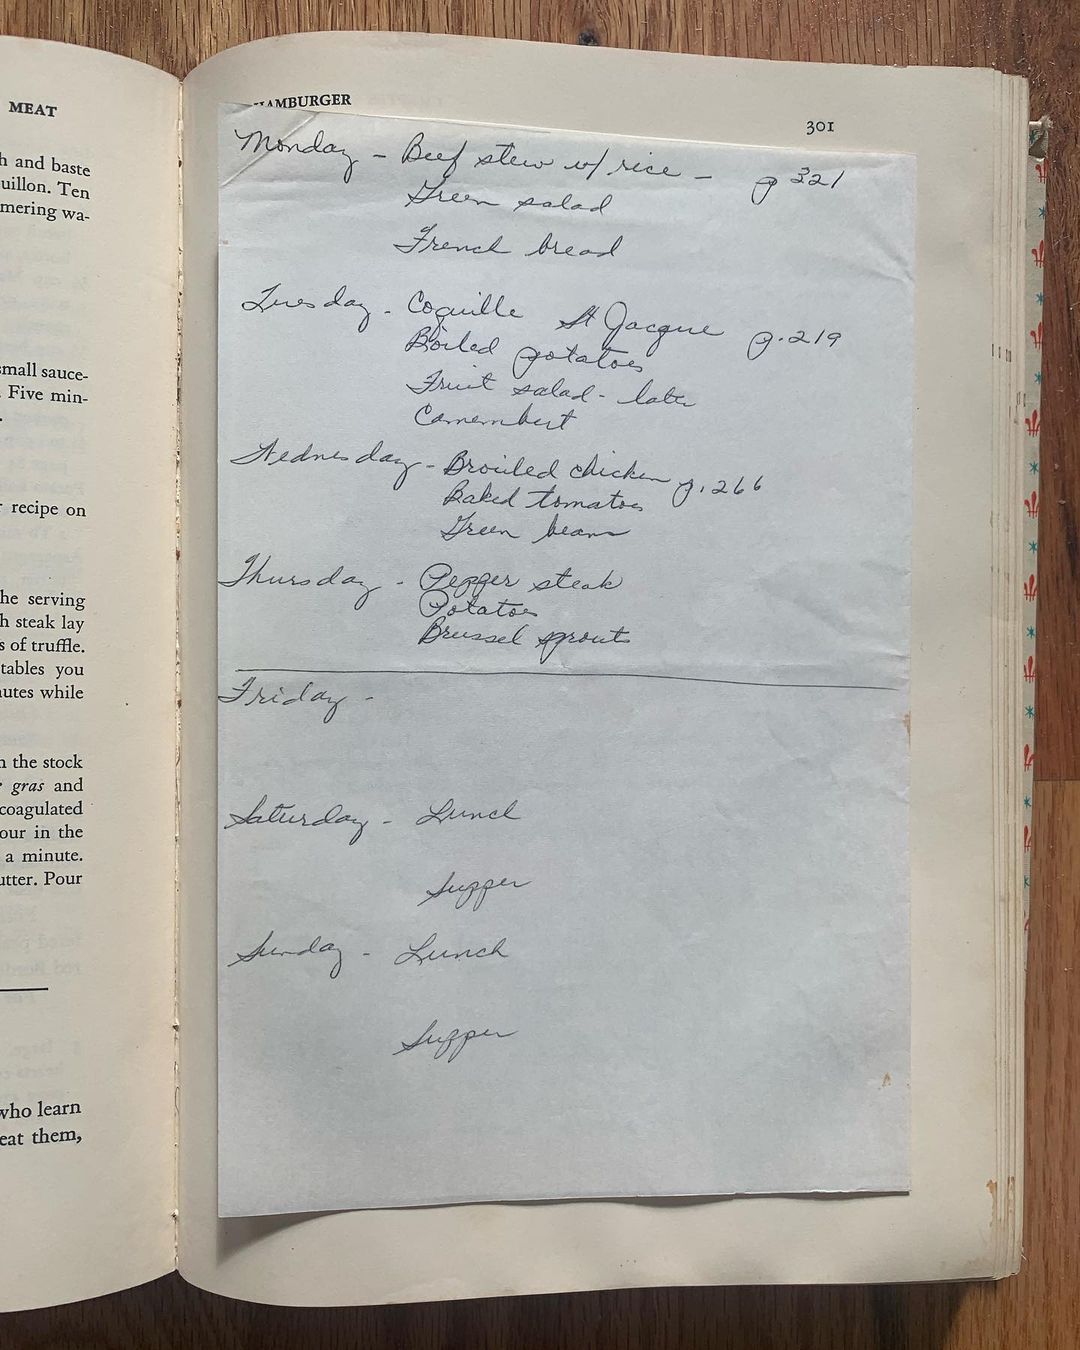 MEAT
h and baste
uillon. Ten
mering wa-
small sauce-
Five min-
recipe on
he serving
h steak lay
s of truffle.
tables you
nutes while
n the stock
gras and
coagulated
our in the
a minute.
utter. Pour
who learn
eat them,
HAMBURGER
301
Monday - Beef stew w/ rice - p 321
Green salad
French bread
Tuesday - Coquille St Jacque p. 219
Boiled potatoes
Fruit salad - later
Camembert
Wednesday - Broiled chicken p. 266
Baked tomatoes
Green beans
Thursday - Pepper steak
Potatoes
Brussel sprouts
Friday -
Saturday - Lunch
Supper
Sunday - Lunch
Supper